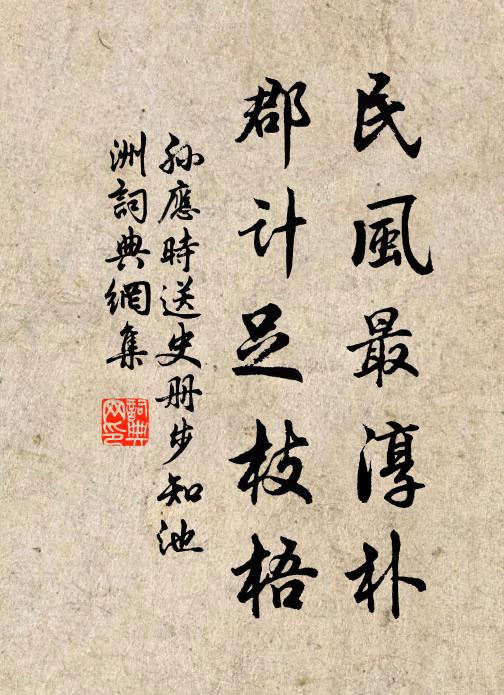 民風最淳朴
郡计足枝梧
孙應時送史册步知池
洲詞典網集
詞典网印